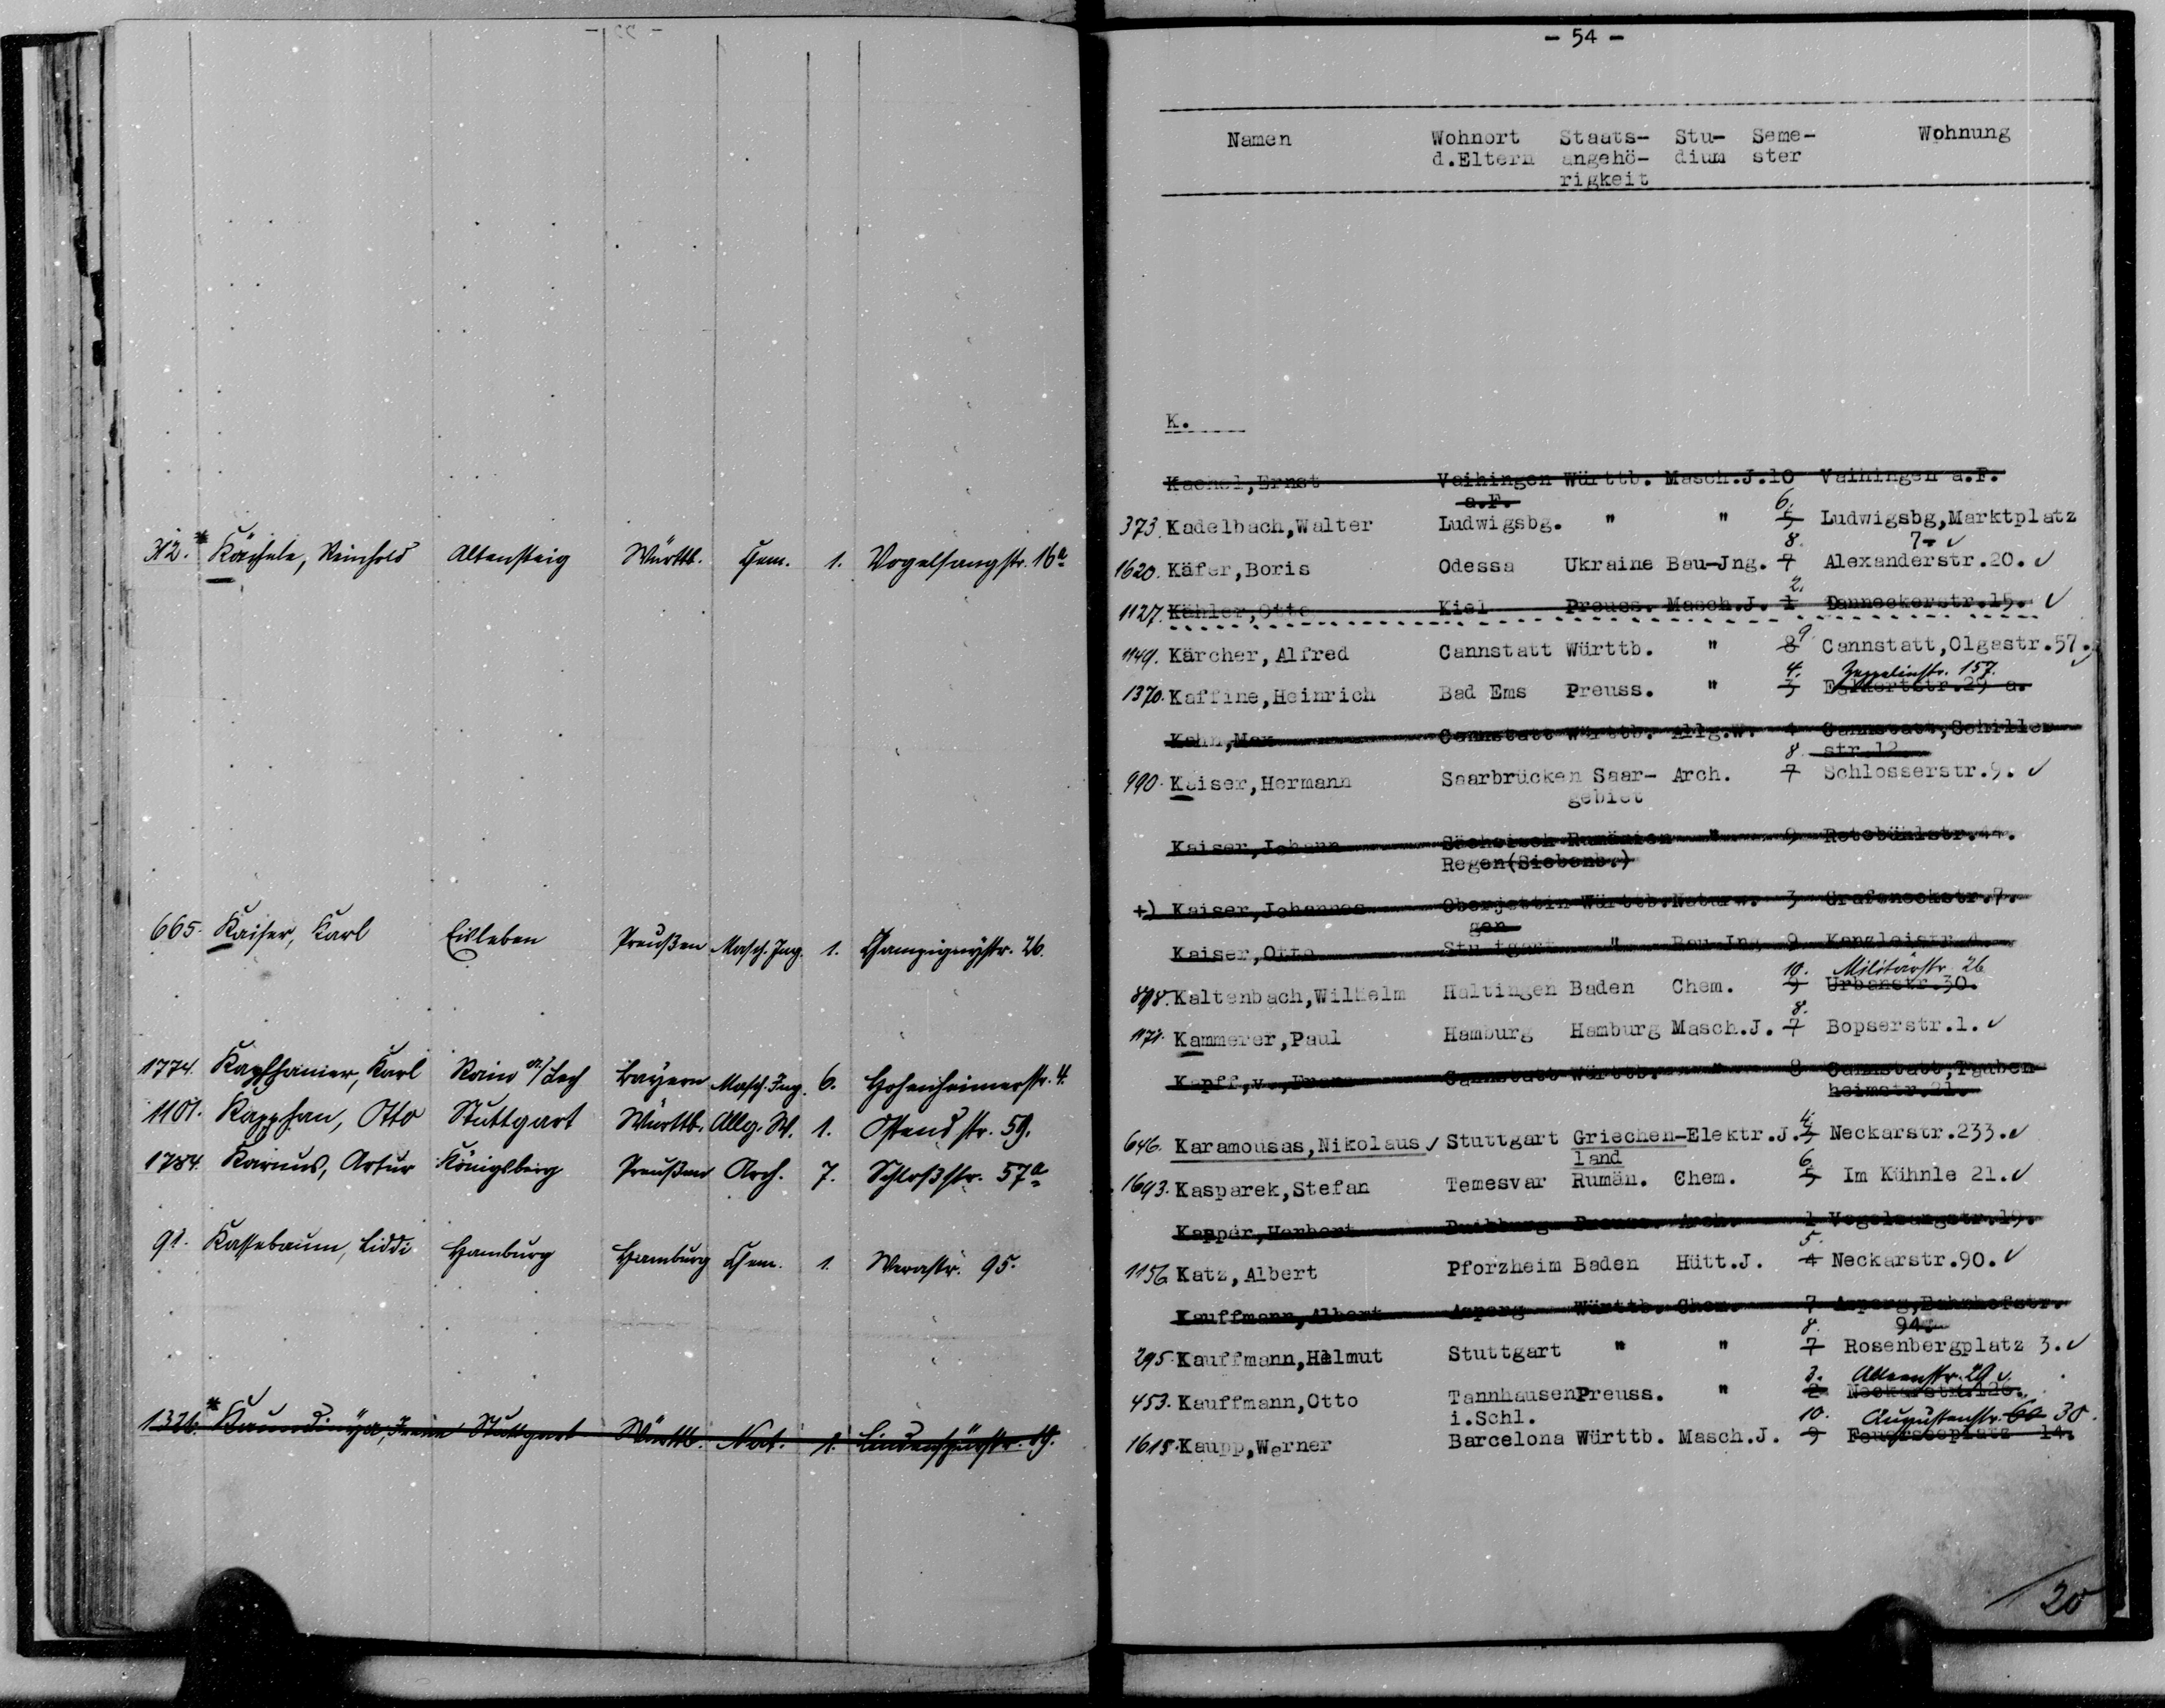 312.* Kächele, Reinhold Altensteig Württb. Chem. 1. Vogelsangstr. 16a
665. Kaiser, Karl Eisleben Preußen Masch. Ing. 1. Champignystr. 26.
1774. Karl Rain a/Lech Bayern Masch. Ing. 6. Hohenheimerstr. 4.
1101. Kapphan, Otto Stuttgart Württb. Allg. W. 1. Ostendstr. 59.
1784. Karius, Artur Königsberg Preußen Arch. 7. Schloßstr. 57a
91. Kassebaum, Liddi Hamburg Hamburg Chem. 1. Werastr. 95.
1326.* Stuttgart Württb. Nat. 1. Lindenspürstr. 19.
- 54 -
Namen Wohnort Staats- Stu- Seme- Wohnung
d.Eltern angehö- dium ster
rigkeit
K.
Kachel,Ernst Vaihingen Württb. Masch.J.10 Vaihingen a.F.
a.F. 6.
373. Kadelbach,Walter Ludwigsbg. " " 5 Ludwigsbg,Marktplatz
8. 7. ✓
1620. Käfer,Boris Odessa Ukraine Bau-Jng. 7 Alexanderstr.20. ✓
2.
1127. Kähler,Otto Kiel Preuss. Masch.J. 1 Danneckerstr.15. ✓
1149. Kärcher, Alfred Cannstatt Württb. " 8 9 Cannstatt,Olgastr.57.
4. Zeppelinstr. 157.
1370. Kaffine,Heinrich Bad Ems Preuss. " 3 29 a.
Kahn,Max Cannstatt Württb. Allg.W. 4 Cannstatt,Schiller
8 str.12
990. Kaiser,Hermann Saarbrücken Saar- Arch. 7 Schlosserstr.9. ✓
gebiet
Kaiser,Johann Sächsisch Rumänien " 9 Rotebühlstr.44.
Regen(Siebenb.)
+) Kaiser,Johannes Oberjettin Württb.Naturw. 3 Grafeneckstr.7.
gen
Kaiser,Otto Stuttgart " Bau-Jng 9 Kanzleistr.4.
10. Militärstr. 26
898. Kaltenbach,Wilhelm Haltingen Baden Chem. 9 Urbanstr.30.
8.
1171. Kammerer,Paul Hamburg Hamburg Masch.J. 7 Bopserstr.1. ✓
Kapff,v.,Franz Cannstatt Württb. " 8 Cannstatt,Tauben
heimstr.21.
4.
646. Karamousas,Nikolaus ✓ Stuttgart Griechen-Elektr.J. 3 Neckarstr.233. ✓
land
6.
1693. Kasparek,Stefan Temesvar Rumän. Chem. 5 Im Kühnle 21. ✓
Kasper,Herbert Duisburg Preuss. Arch. 1 Vogelsangstr.19.
5.
1156 Katz,Albert Pforzheim Baden Hütt.J. 4 Neckarstr.90. ✓
Kauffmann,Albert Asperg Württb. Chem. 7 Asperg,Bahnhofstr.
8. 94.
295. Kauffmann,Helmut Stuttgart " " 7 Rosenbergplatz 3. ✓
3.
453. Kauffmann,Otto TannhausenPreuss. " 2 Neckarstr.
i.Schl. 10. Augustenstr. 60 38.
1615. Kaupp,Werner Barcelona Württb. Masch.J. 9 Feuerseeplatz 14.
20